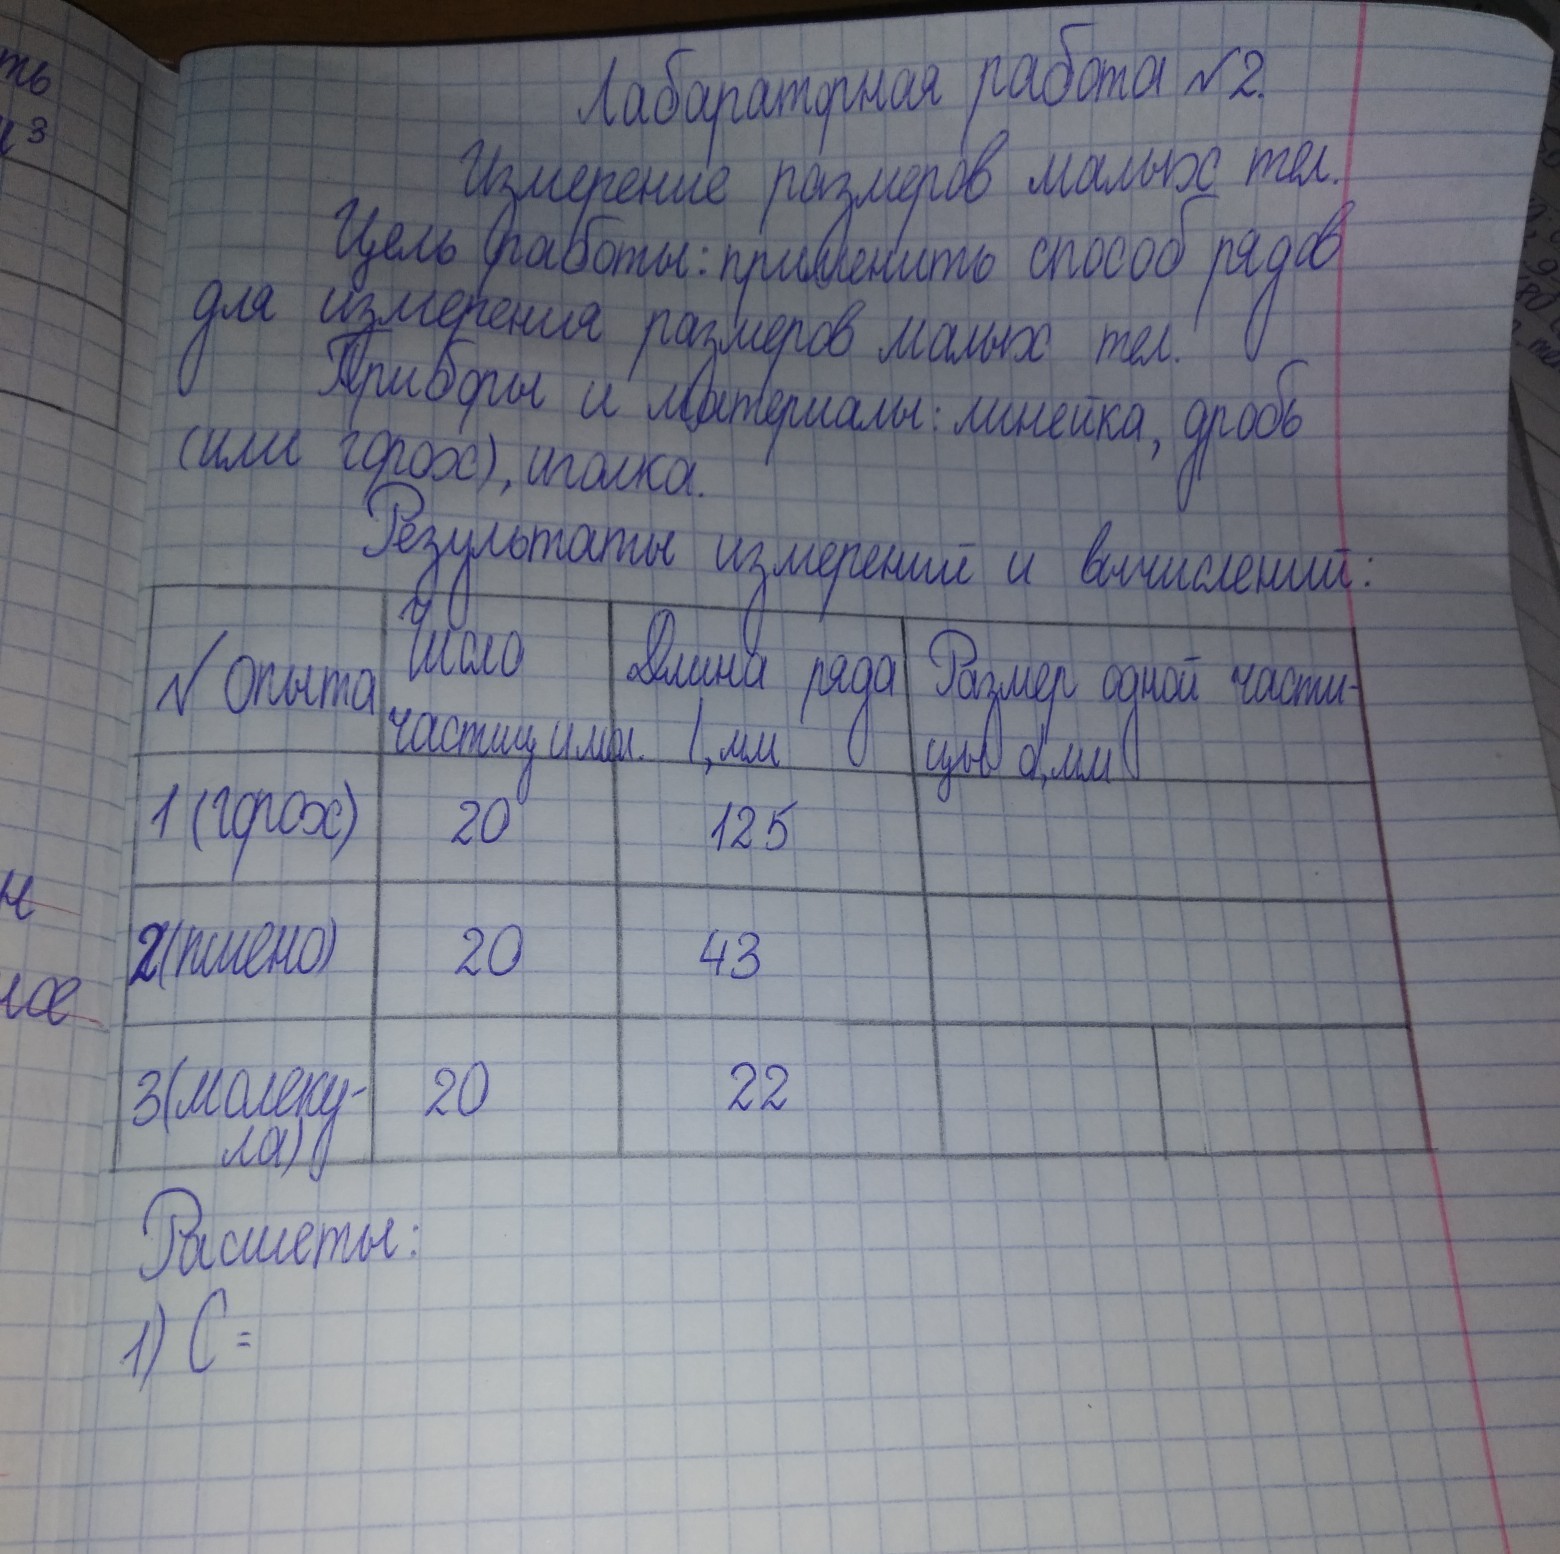 ть
3
Лабараторная работа №2.
Измерение размеров малых тел.
Цель работы: применить способ рядов
для измерения размеров малых тел.
Приборы и материалы: линейка, дробь
(или горох), иголка.
Результаты измерений и вычислений:
№ опыта
Число
частиц
Длина ряда
l, мм
Размер одной части-
цы d, мм
1 (горох) 20 125
2(пшено) 20 43
3(молеку-
ла) 20 22
Расчеты:
1) C =